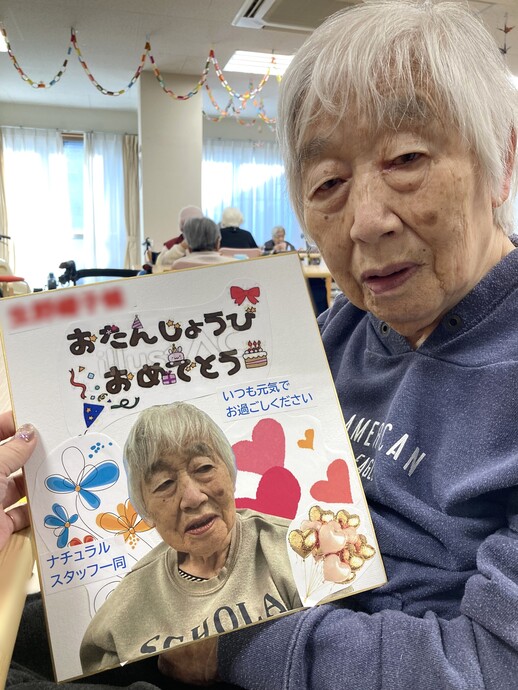 おたんじょうび
おめでとう
いつも元気で
お過ごしください
ナチュラル
スタッフ一同
AMERICAN
EAGLE
SCHOLA